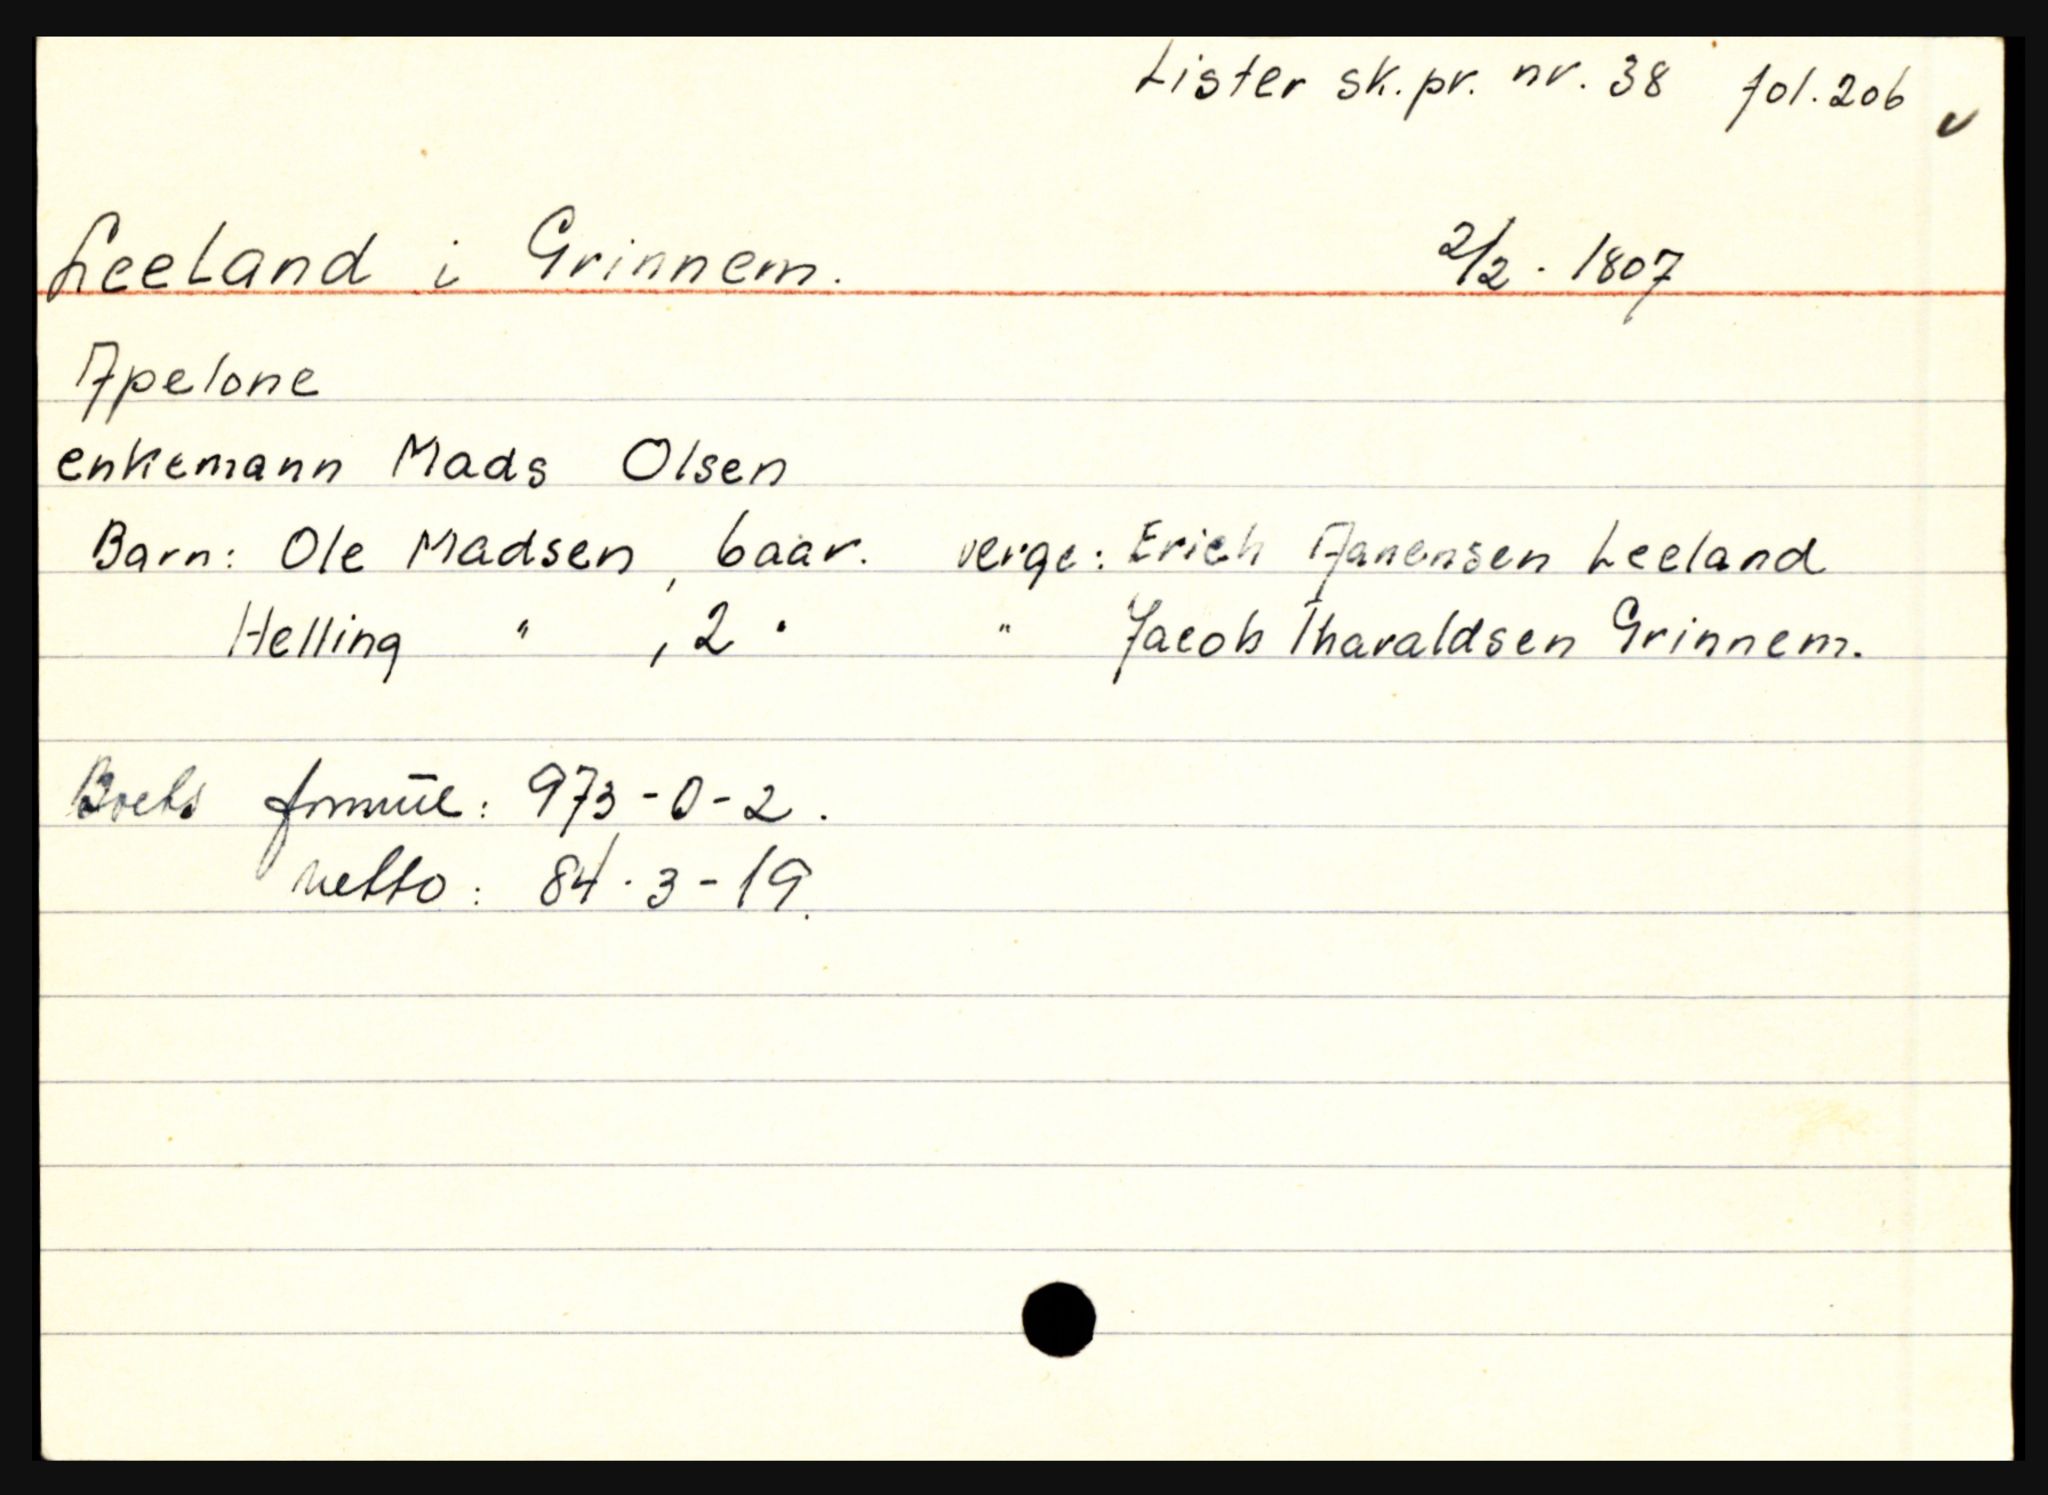 Lister sk.pr. nr. 38 fol. 206 ✓
Leeland i Grinnem. 2/2. 1807
Apelone
enkemann Mads Olsen
Barn: Ole Madsen, 6 aar. verge: Erich Aanensen Leeland
Helling " , 2 " " Jacob Tharaldsen Grinnem.
Boets formue: 973-0-2.
netto: 84-3-19.